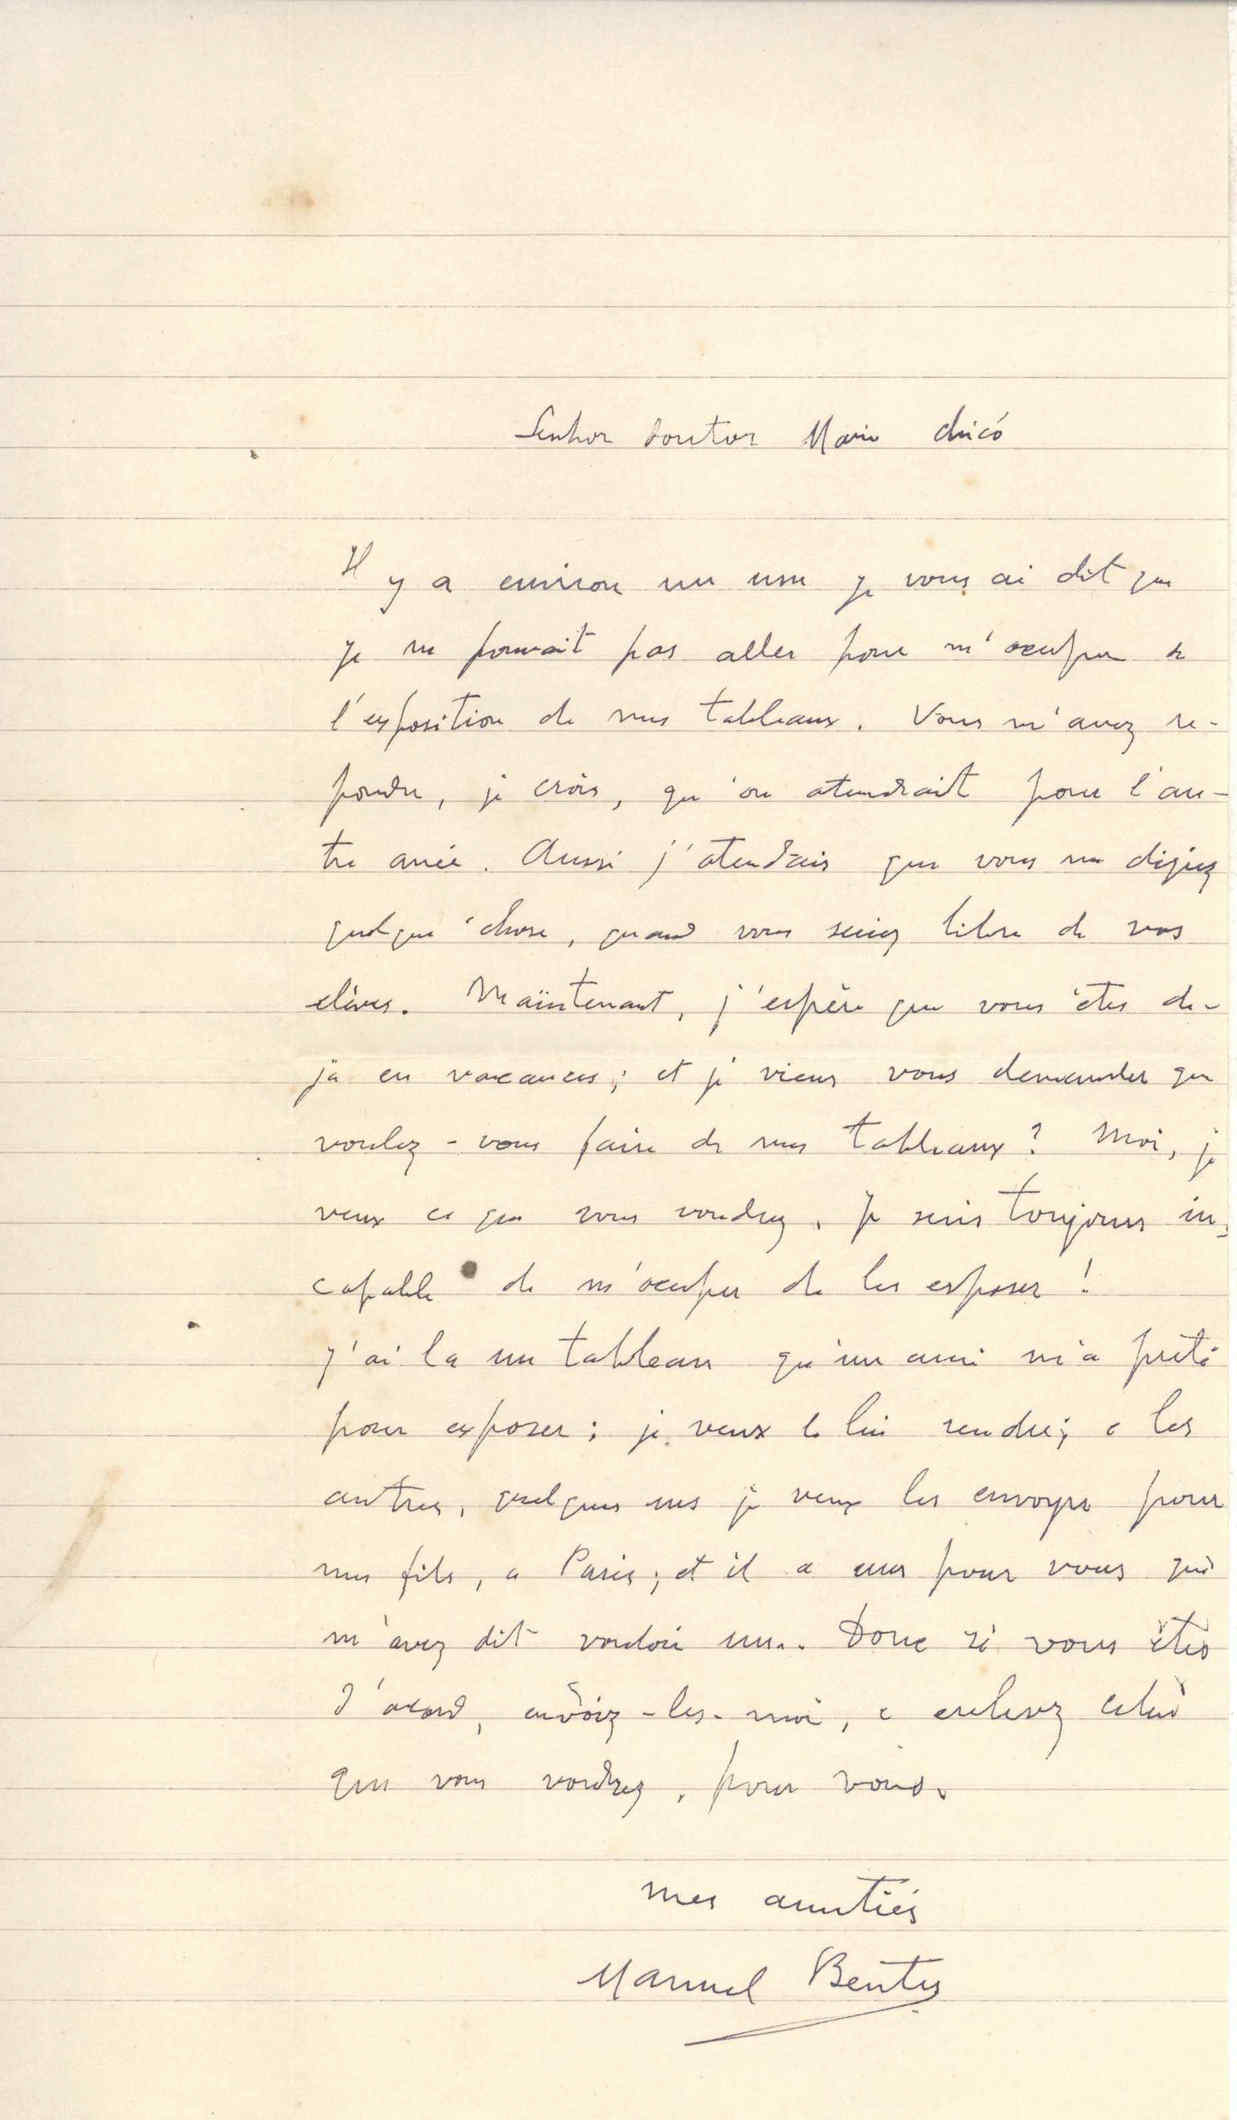 Senhor Doutor Mario Chicó
Il y a environ un mois je vous ai dit que
je ne pouvait pas aller pour m'ocuper de
l'exposition de mes tableaux. Vous m'avez re-
pondu, je crois, qu'on atendrait pour l'au-
tre anée. Aussi j'atendais que vous me disiez
quelque chose, quand vous seriez libre de vos
elèves. Maintenant, j'espère que vous êtes de-
ja en vacances; et je viens vous demander que
voulez-vous faire de mes tableaux? Moi, je
veux ce que vous voudrez. Je suis toujours in-
capable de m'ocuper de les exposer!
J'ai la un tableau qu'un ami m'a preté
pour exposer; je veux le lui rendre; e les
autres, quelques uns je veux les envoyer pour
mes fils, a Paris; et il a un pour vous qui
m'avez dit vouloir un.. Donc si vous êtes
d'acord, envoiez-les-moi, e enlevez celui
que vous voudrez, pour vous.
mes amitiés
Manuel Bentes